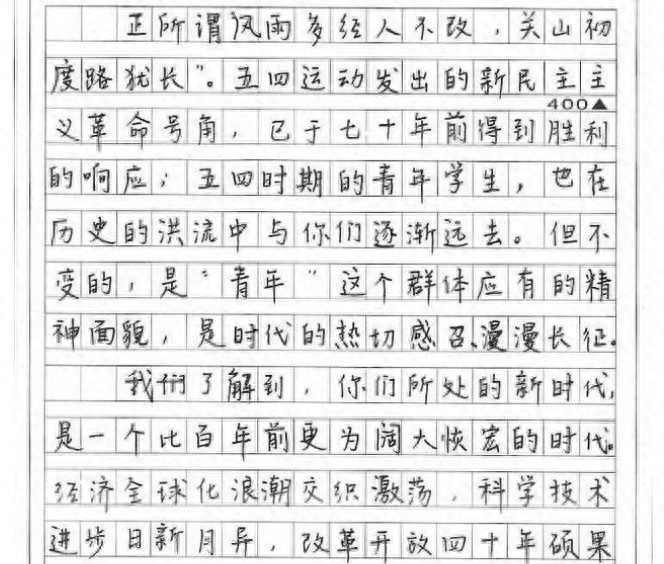 正所谓风雨多经人不改，关山初
度路犹长”。五四运动发出的新民主主
400▲
义革命号角，已于七十年前得到胜利
的响应；五四时期的青年学生，也在
历史的洪流中与你们逐渐远去。但不
变的，是“青年”这个群体应有的精
神面貌，是时代的热切感召、漫漫长征。
我们了解到，你们所处的新时代，
是一个比百年前更为阔大恢宏的时代。
经济全球化浪潮交织激荡，科学技术
进步日新月异，改革开放四十年硕果